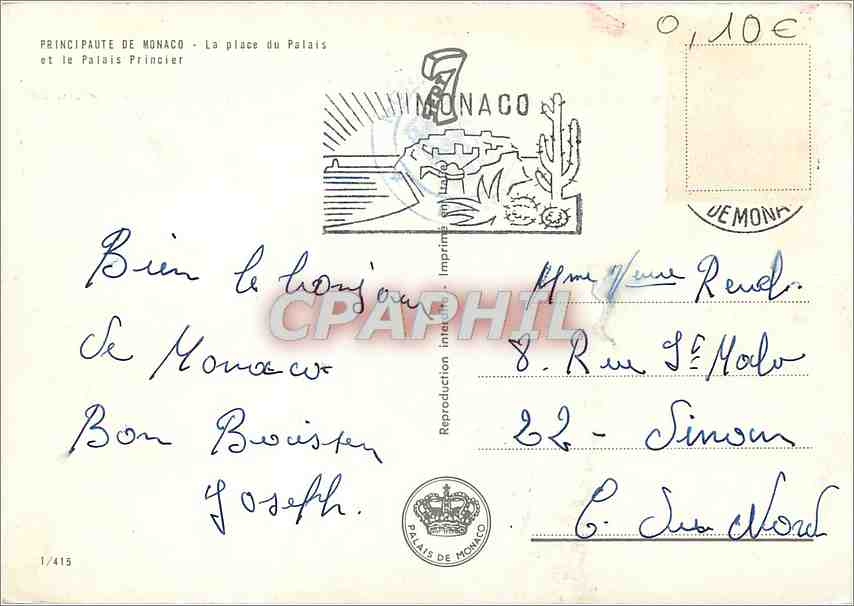 PRINCIPAUTE DE MONACO - La place du Palais
et le Palais Princier
0,10 €
MONACO
DE MONA
Bien le bonjour
de Monaco
Bon Baiser
Joseph.
Mme Veuve
8. Rue St Malo
22 -
C. du Nord
Reproduction interdite - Imprimé en Italie
CPAPHIL
PALAIS DE MONACO
1/415